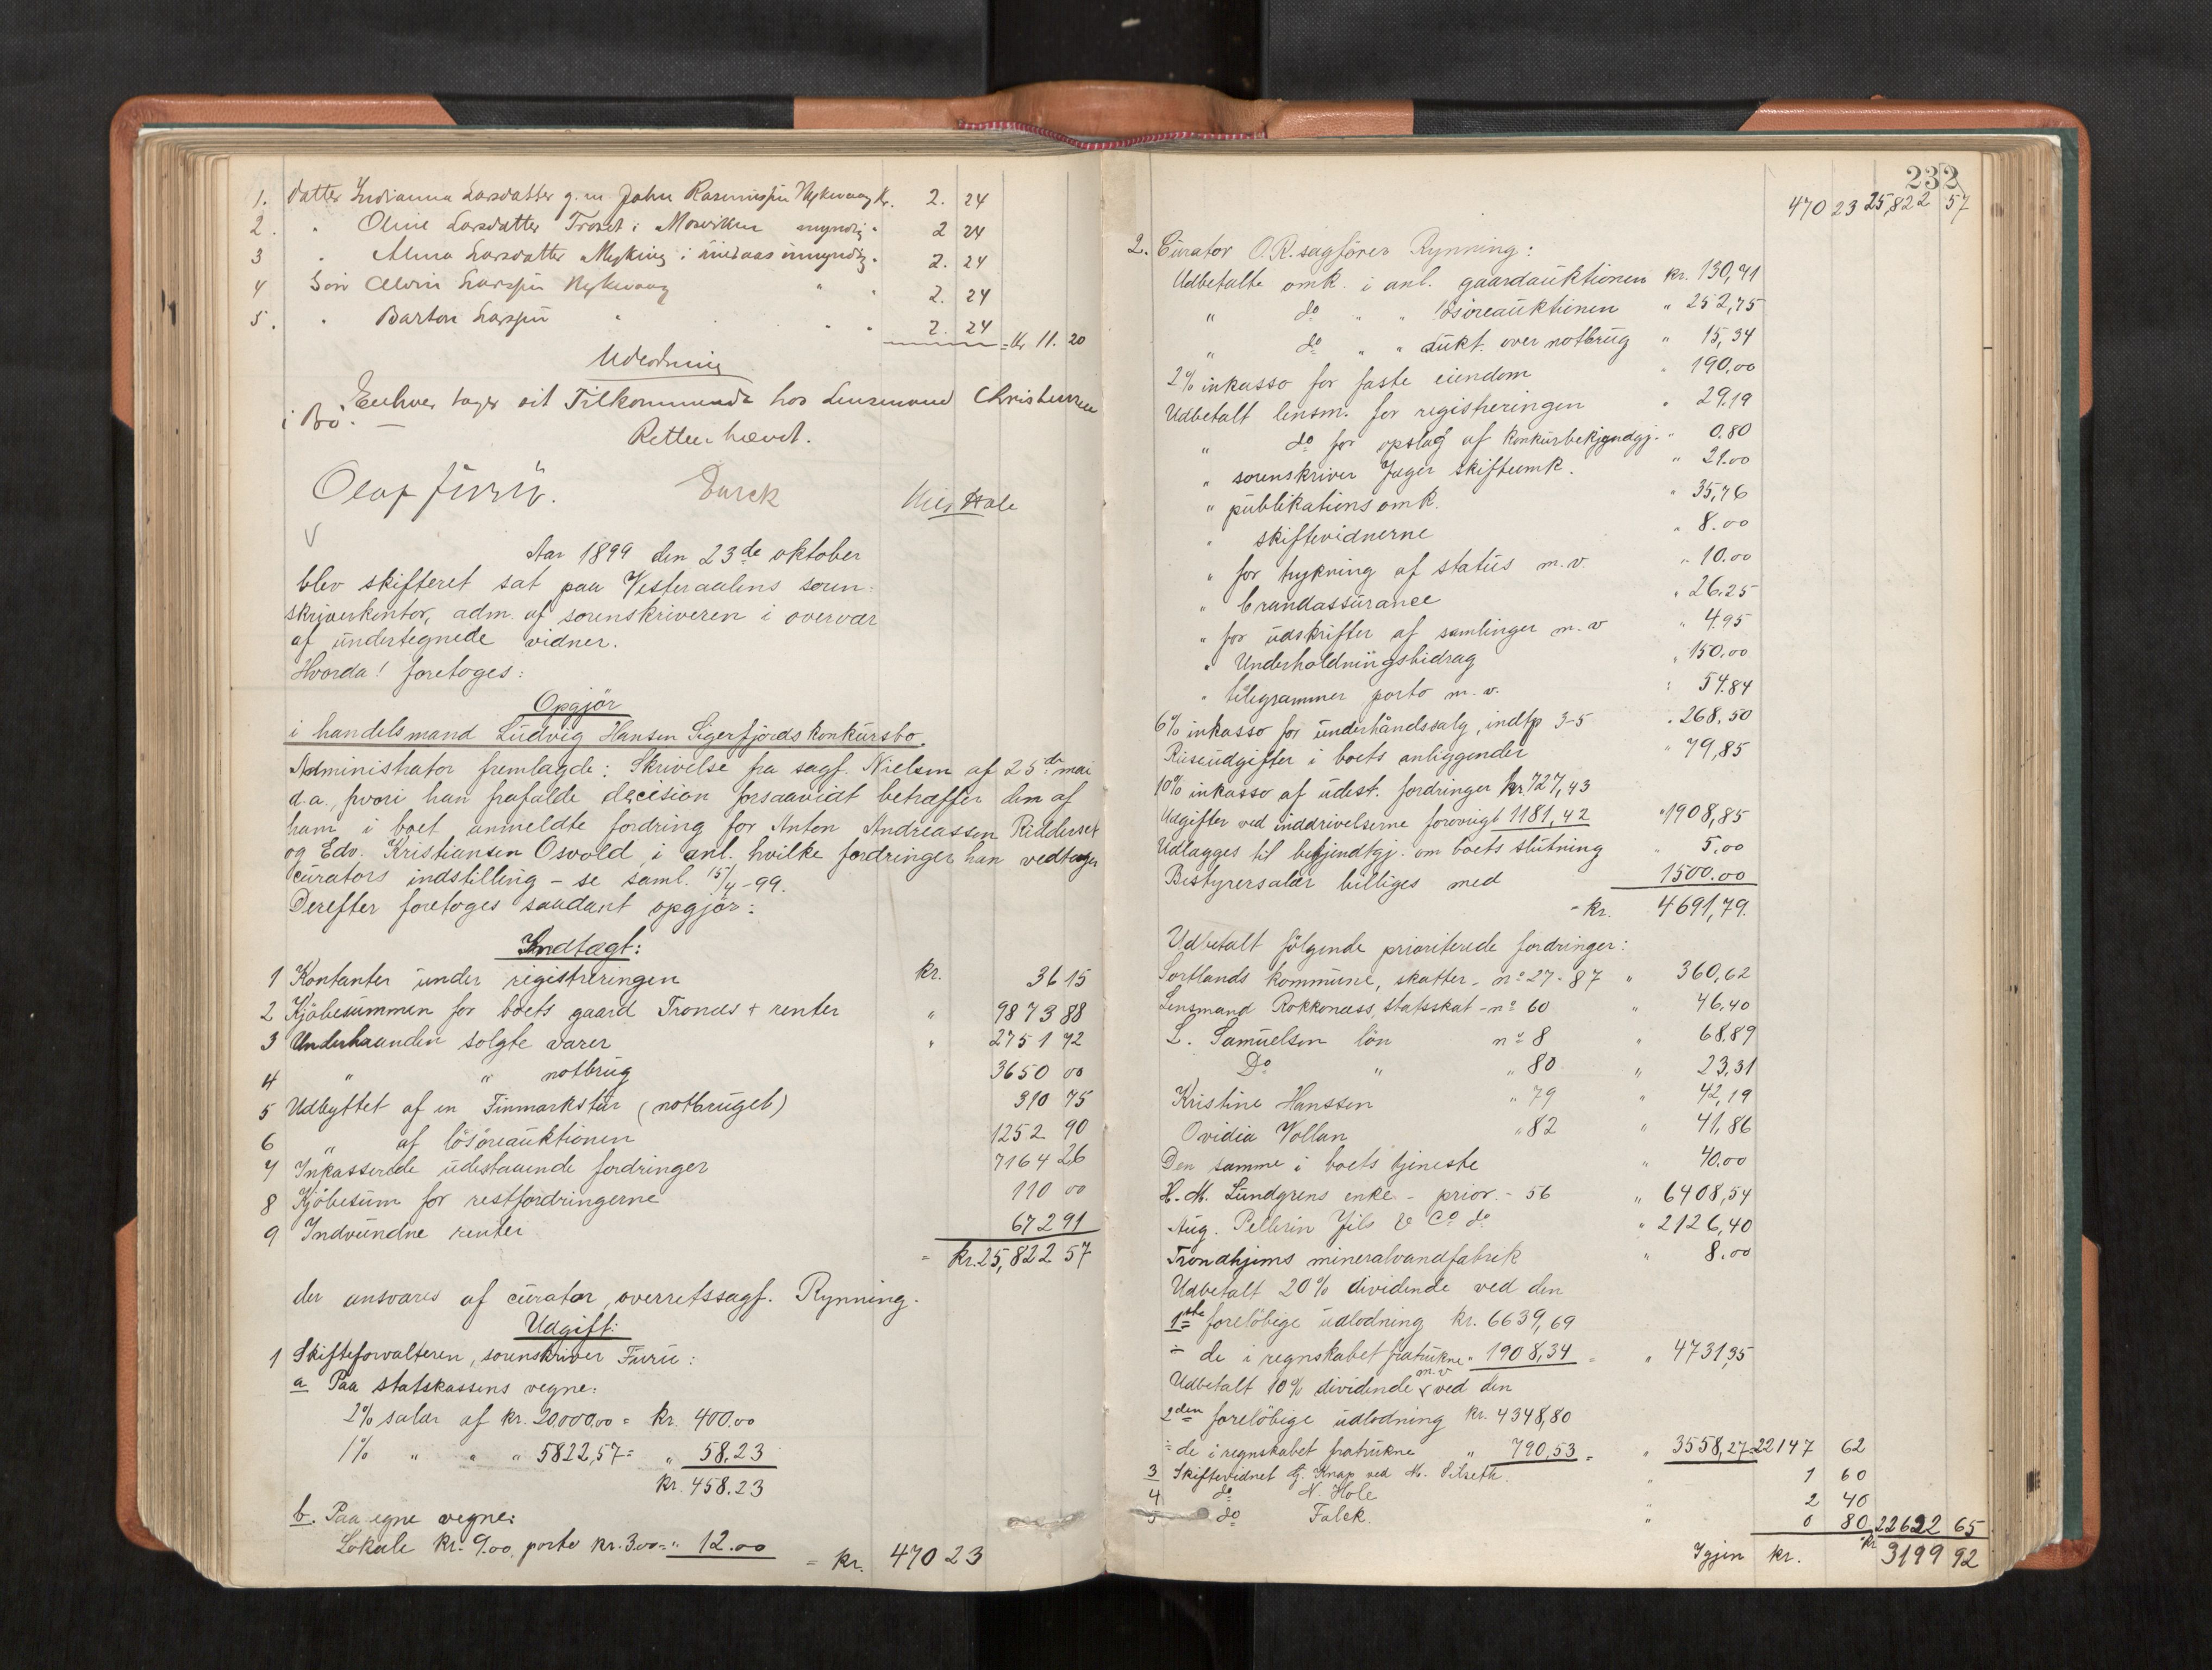 1. Datter Indianna Larsdatter g. m. John Rasmussen Nykvaag Kr. 2. 24
2. " Oline Larsdatter Troset i myndig " 2 24
3 " Alma Larsdatter Nyking i umyndig " 2. 24
4 Søn Alvin Larssen Nykvaag " " 2. 24
5. " Barton Larssen " " " 2. 24 = Kr 11. 20
Udlodning
Enhver tager sit Tilkommende hos Lensmand Christensen
i Bø.
Retten hævet.
Olaf Furu. Durck Nils Hole
Aar 1899 den 23de oktober
blev skifteret sat paa Vesteraalens soren-
skriverkontor, adm. af sorenskriveren i overvær
af undertegnede vidner.
Hvorda! foretoges:
Opgjør
i handelsmand Ludvig Hansen Sigerfjords konkursbo.
Administrator fremlagde: Skrivelse fra sagf. Nielsen af 25de mai
d.a., hvori han frafalde decision forsaavidt betræffer dem af
ham i boet anmeldte fordring for Anton Andreassen Ridderset
og Edv. Kristiansen Osvold, i anl. hvilke fordringer han vedtager
curators indstilling - se saml. 15/4-99.
Derefter foretoges saadant opgjør:
Indtægt:
1 Kontanter under registreringen kr. 36 15
2 Kjøbesummen for boets gaard Tronæs + renter " 9873 88
3 Underhaanden solgte varer " 2751 72
4 " " notbrug 3650 00
5 Udbyttet af en Finmarkstur (notbruget) 310 75
6 " af løsøreauktionen 1252 90
7 Inkasserede udestaaende fordringer 7164 26
8 Kjøbesum for restfordringerne 110 00
9 Indvundne renter 672 91
= kr. 25,822 57
der ansvares af curator, overretssagf. Rynning.
Udgift:
1 Skifteforvalteren, sorenskriver Furu:
a Paa statskassens vegne:
2% salær af kr. 20000,00 = kr. 400.00
1% " " " 5822,57 = " 58.23
kr. 458.23
b. Paa egne vegne:
Lokale kr. 9.00, porto kr. 3.00 = " 12.00 = kr. 470 23
232
470 23 25,822 57
2. Curator O.R.sagfører Rynning:
Udbetalte omk. i anl. gaardauktionen kr. 130,91
" do " " løsøreauktionen " 252,75
" do " " aukt. over notbrug " 15,34
2% inkasso for faste eiendom " 190,00
Udbetalt lensm. for registreringen " 29.19
" do for opslag af konkursbekjendtgj. " 0.80
" sorenskriver Jæger skifteomk. " 21.00
" publikationsomk. " 35,76
" skiftevidnerne " 8.00
" for trykning af status m.v. " 10.00
" brandassurance " 26.25
" for udskrifter af samlinger m.v " 4.95
" Underholdningsbidrag " 150.00
" telegrammer porto m.v. " 54.84
6% inkasso for underhåndssalg, indtp 3-5 " 268.50
Reiseudgifter i boets anliggender " 79,85
10% inkasso af udest. fordringer kr 727,43
Udgifter ved inddrivelserne forøvrigt 1181,42 " 1908,85
Udlægges til bekjendtgj. om boets slutning " 5.00
Bestyrersalær billiges med 1500.00
= kr. 4691,79.
Udbetalt følgende prioriterede fordringer:
Sortlands kommune, skatter - no 27-87 " 360,62
Lensmand Rokkonæss, statsskat - no 60 " 46,40
L. Samuelsen løn no 8 " 68.89
Do " " 80 " 23,31
Kristine Hanssen " 79 " 42,19
Ovidia Vollan " 82 " 41,86
Den samme i boets tjeneste " 40.00
H. M. Lundgrens enke - prior. - 56 " 6408,54
Aug. Pellerin Fils & Co do " 2126,40
Trondhjems mineralvandfabrik " 8.00
Udbetalt 20% dividende ved den
1ste foreløbige udlodning kr. 6639,69
÷ de i regnskabet fratrukne " 1908,34 = " 4731,35
Udbetalt 10% dividende m.v ved den
2den foreløbige udlodning kr. 4348,80
÷ de i regnskabet fratrukne " 790,53 = " 3558,27 = 22147 62
3 Skiftevidnet G. Knap ved M. " 1 60
4 do N. Hole 2 40
5 do Falck " 0 80 22622 65
Igjen kr. kr 3199 92